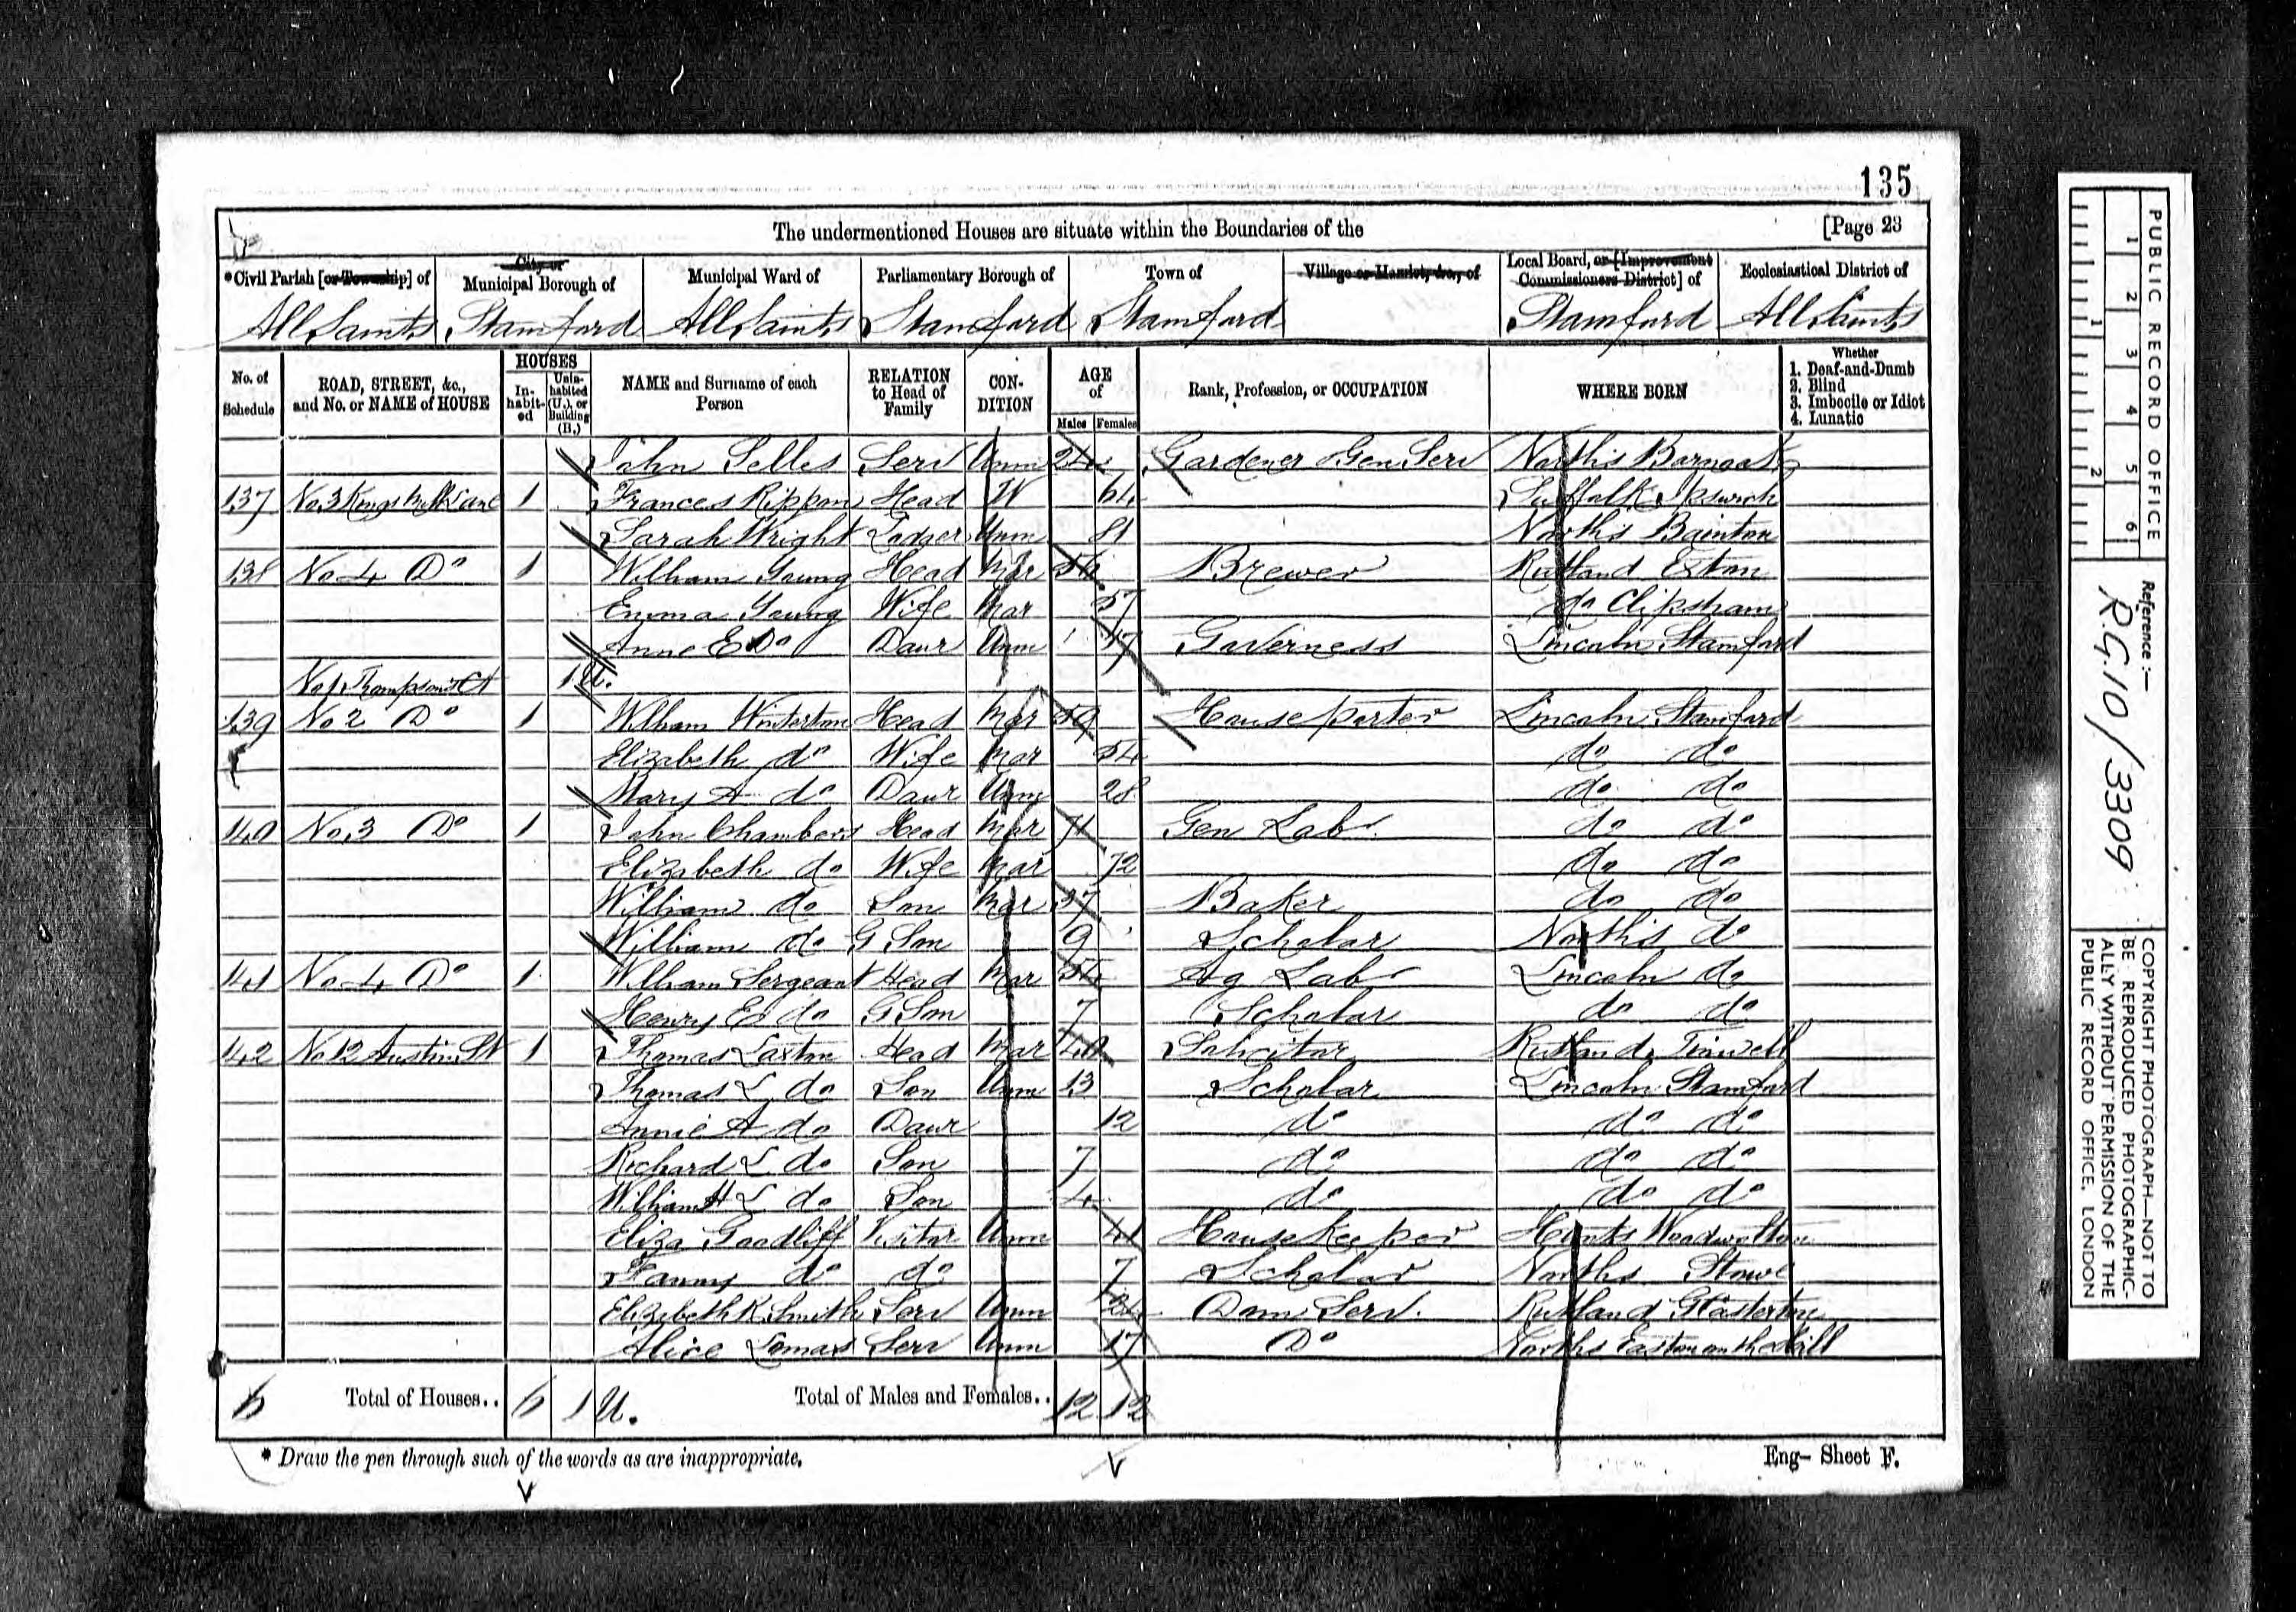 135
The undermentioned Houses are situate within the Boundaries of the [Page 23
*Civil Parish [or Township] of City or Municipal Borough of Municipal Ward of Parliamentary Borough of Town of Village or Hamlet, &c., of Local Board, or [Improvement Commissioners District] of Ecclesiastical District of
All Saints Stamford All Saints Stamford Stamford Stamford All Saints
No. of Schedule ROAD, STREET, &c., and No. or NAME of HOUSE HOUSES In-habit-ed Unin-habited (U.), or Building (B.) NAME and Surname of each Person RELATION to Head of Family CON-DITION AGE of Males Females Rank, Profession, or OCCUPATION WHERE BORN Whether 1. Deaf-and-Dumb 2. Blind 3. Imbecile or Idiot 4. Lunatic
John Selles Serv Unm 24 Gardener Gen Serv Norths Barnack
137 No 3 Kings Mill Lane 1 Frances Rippon Head W 64 Suffolk Ipswich
Sarah Wright Lodger Unm 81 Norths Bainton
138 No 4 Do 1 William Young Head Mar 56 Brewer Rutland Exton
Emma Young Wife Mar 57 do Clipsham
Anne E Do Daur Unm 17 Governess Lincoln Stamford
No 1 Thompsons Ct 1 U.
139 No 2 Do 1 William Winterton Head Mar 59 House porter Lincoln Stamford
Elizabeth do Wife Mar 54 do do
Mary A do Daur Unm 28 do do
140 No 3 Do 1 John Chambers Head Mar 71 Gen Lab do do
Elizabeth do Wife Mar 72 do do
William do Son Mar 37 Baker do do
William do G Son 9 Scholar Norths do
141 No 4 Do 1 William Sergeant Head Mar 54 Ag Lab Lincoln do
Henry E do G Son 7 Scholar do do
142 No 12 Austin St 1 Thomas Laxton Head Mar 40 Solicitor Rutland Tinwell
Thomas L do Son Unm 13 Scholar Lincoln Stamford
Annie A do Daur 12 do do do
Richard L do Son 7 do do do
William H L do Son 4 do do do
Eliza Goodliff Visitor Unm 41 House Keeper Hunts Woodwalton
Fanny do do 7 Scholar Norths Stowe
Elizabeth R Smith Serv Unm 24 Dom Serv. Rutland G Casterton
Alice Lomas Serv Unm 17 Do Norths Easton on the Hill
6 Total of Houses.. 6 1 U. Total of Males and Females.. 12 12
* Draw the pen through such of the words as are inappropriate. Eng- Sheet F.
PUBLIC RECORD OFFICE
1 2 3 4 5 6
1 2
Reference :-
R.G.10/3309
COPYRIGHT PHOTOGRAPH—NOT TO
BE REPRODUCED PHOTOGRAPHIC-
ALLY WITHOUT PERMISSION OF THE
PUBLIC RECORD OFFICE, LONDON